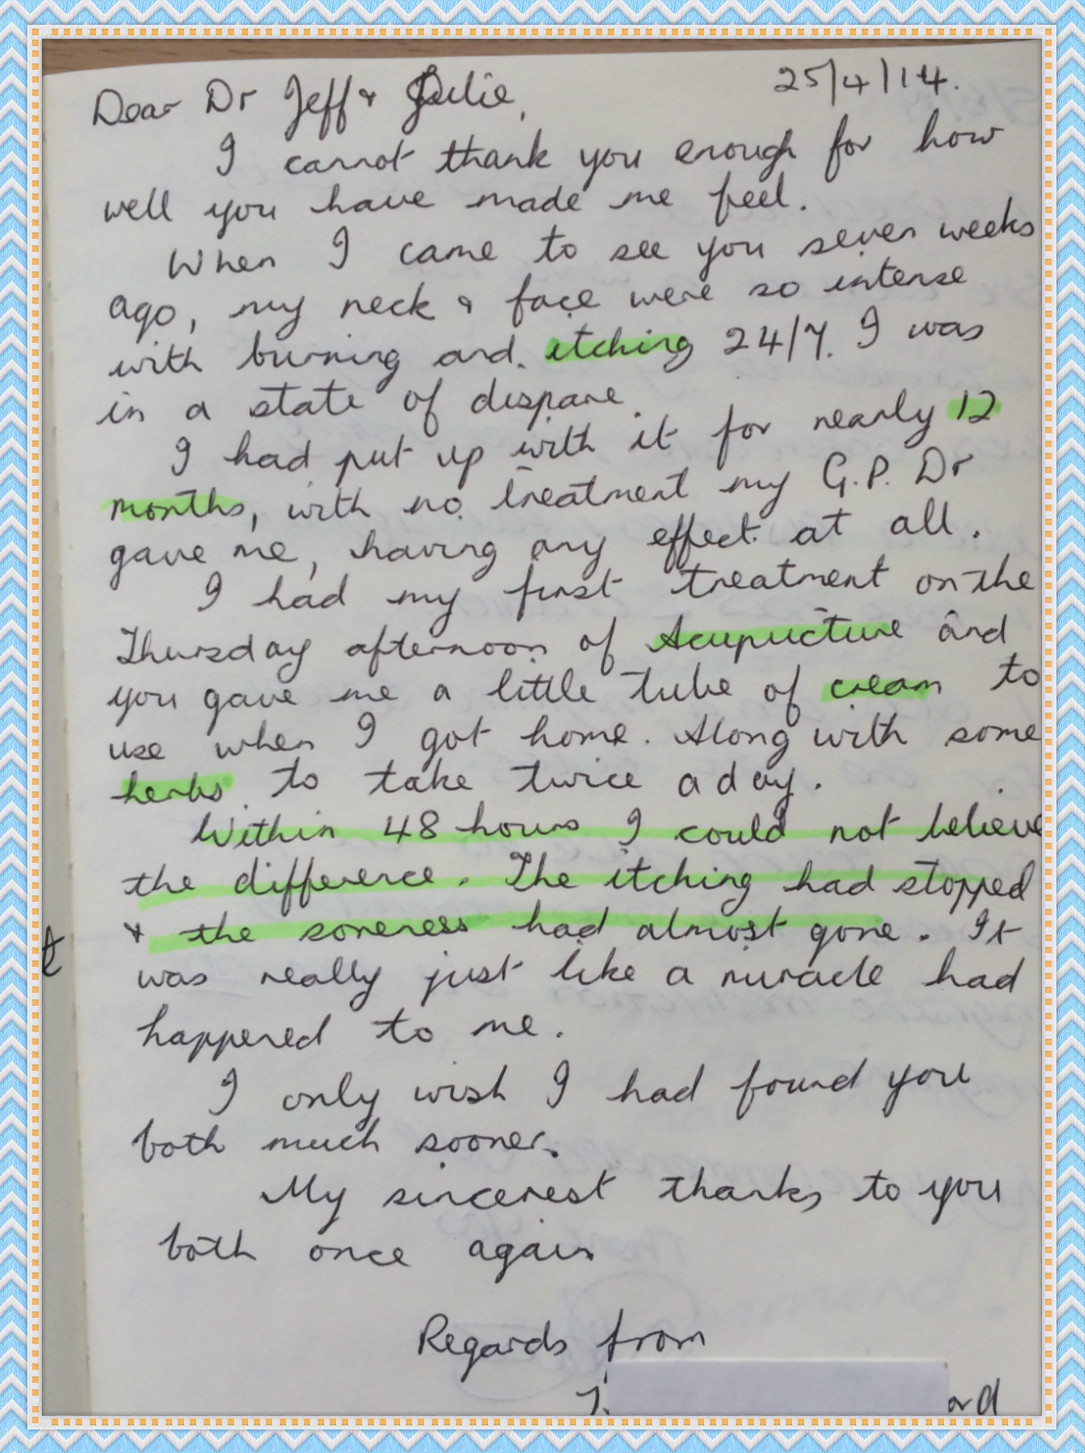 25/4/14.
Dear Dr Jeff & Julie,
I cannot thank you enough for how
well you have made me feel.
When I came to see you seven weeks
ago, my neck & face were so intense
with burning and. itching 24/7. I was
in a state of dispare.
I had put up with it for nearly 12
months, with no. treatment my G.P. Dr
gave me, having any effect. at all.
I had my first treatment on the
Thursday afternoon of Acupucture and
you gave me a little tube of cream to
use when I got home. Along with some
herbs. to take twice a day.
Within 48 hours I could not believe
the difference. The itching had stopped
& the soreness had almost gone. It
was really just like a miracle had
happened to me.
I only wish I had found you
both much sooner.
My sincerest thanks to you
both once again
Regards from